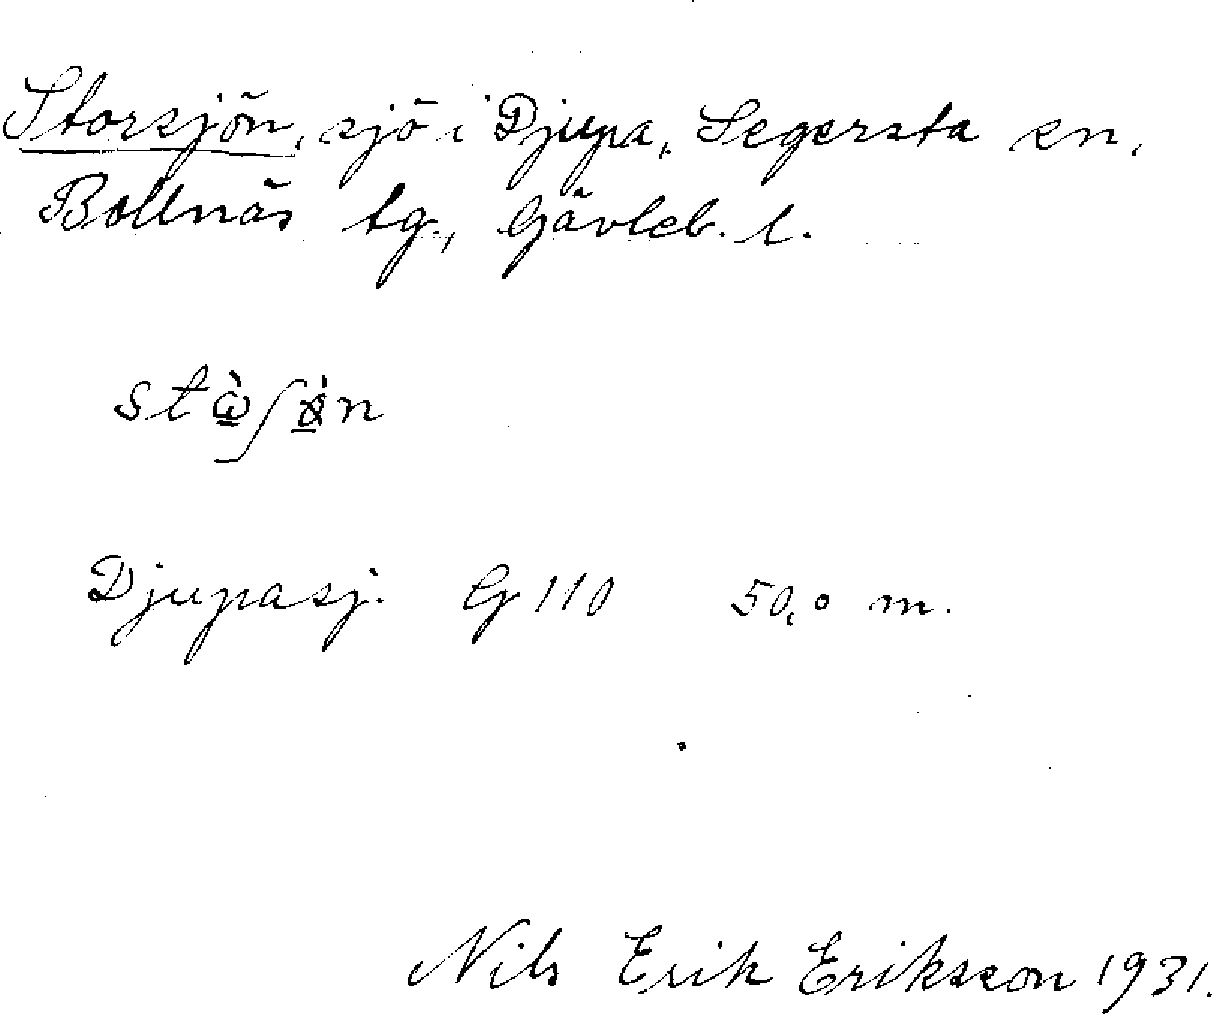 Storsjön, sjö i Djupa, Segersta sn,
Bollnäs tg., Gävleb. l.
Djupasj. G 110 50,0 m.
Nils Erik Eriksson 1931.